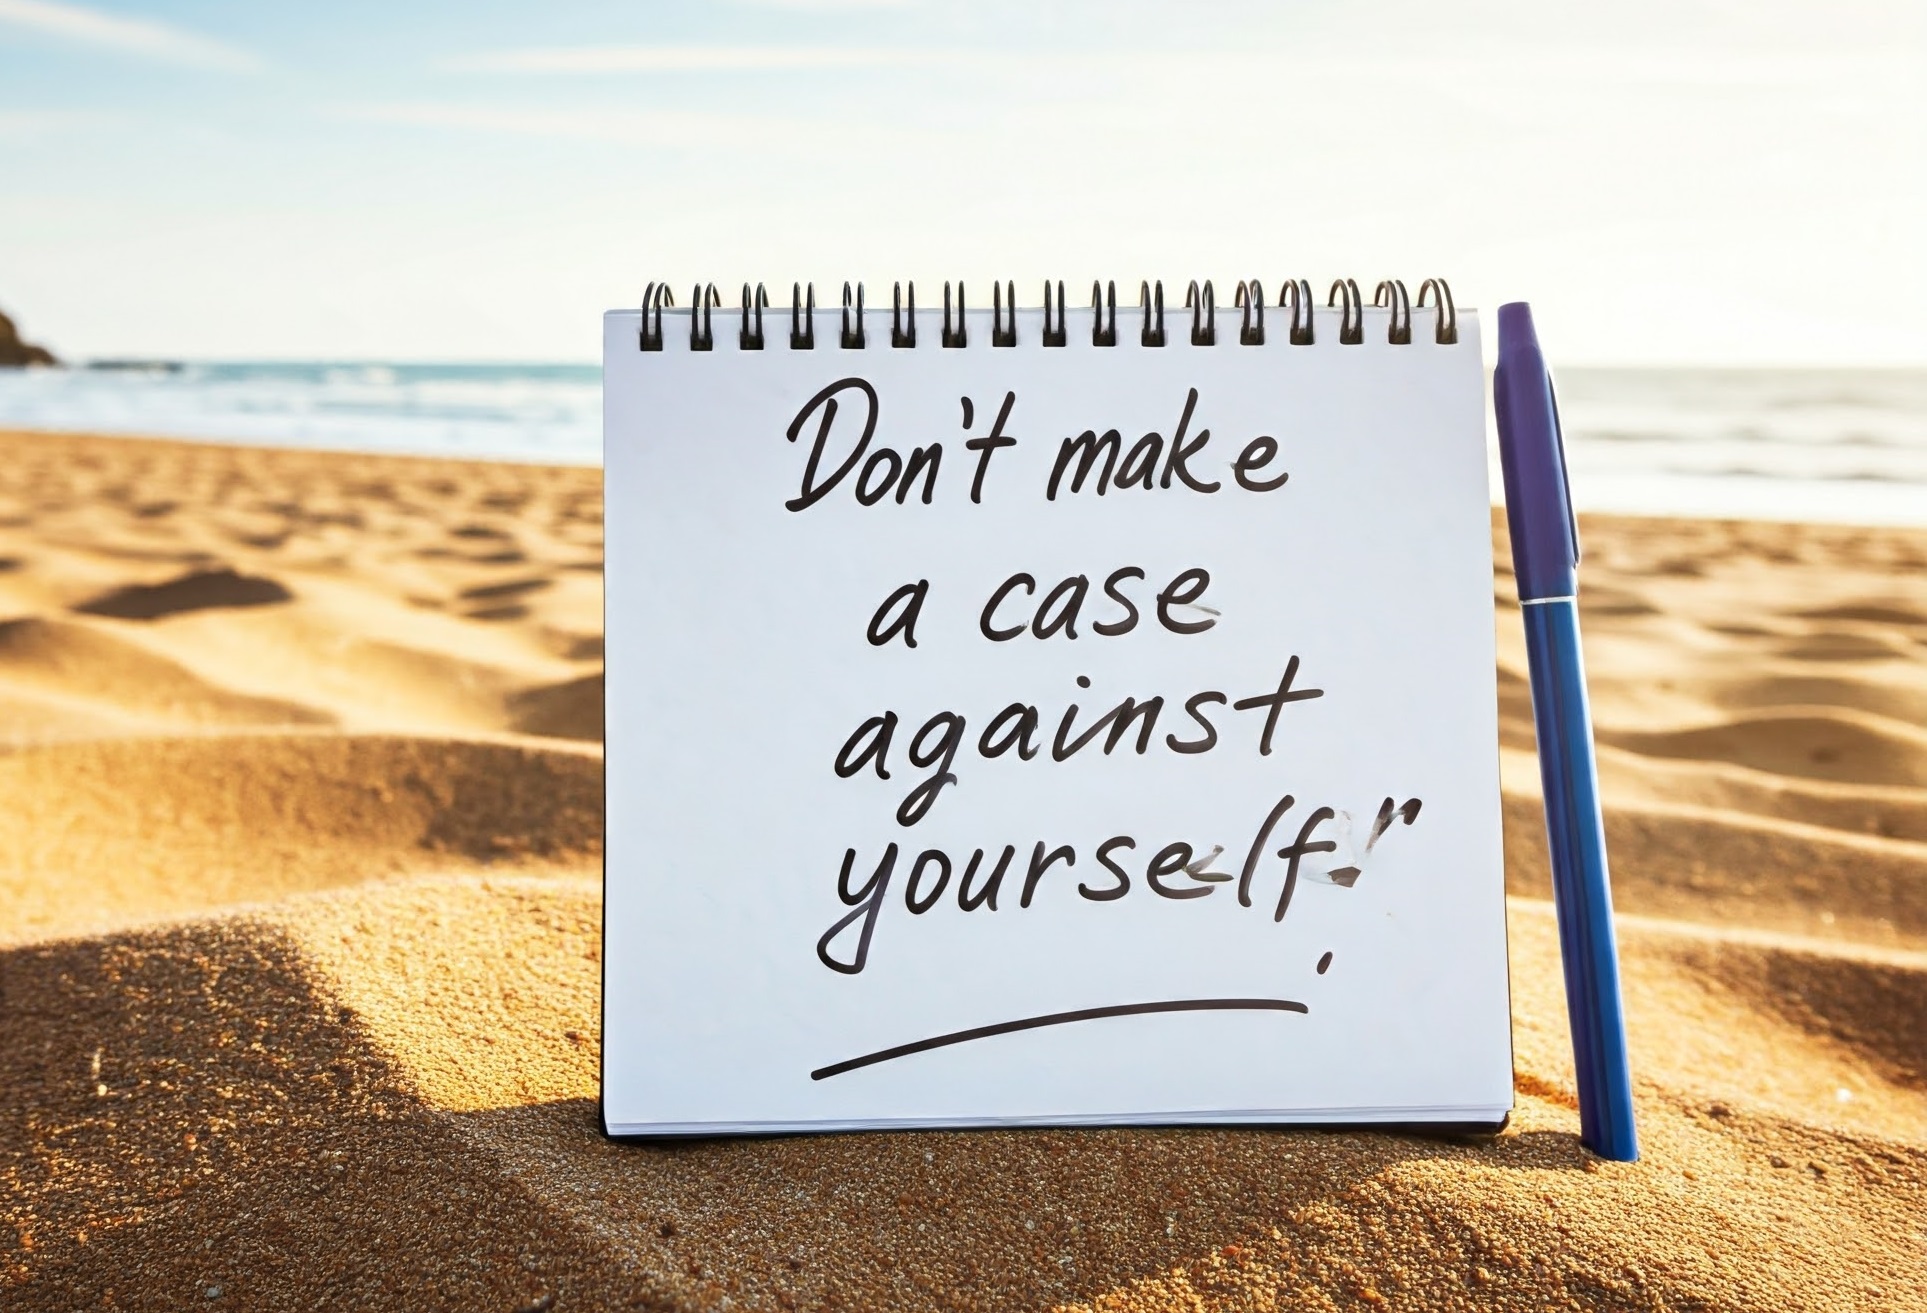 Don't make
a case
against
yourself."